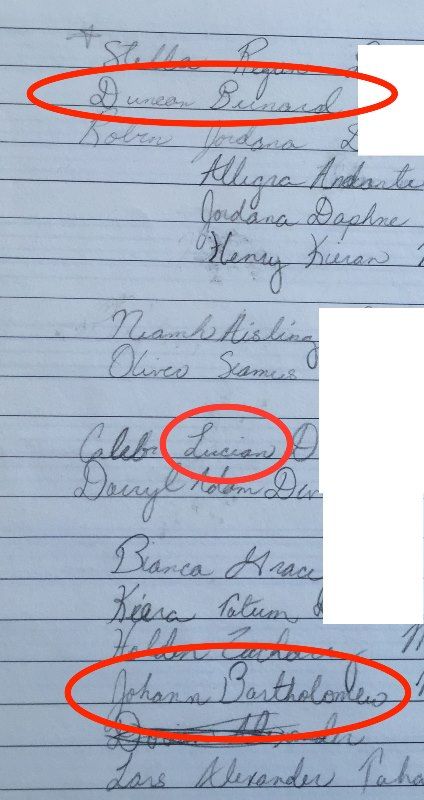 Stella Regan
Duncan Bernard
Robin Jordana
Allegra Andante
Jordana Daphne
Henry Kieran
Niamh Aisling
Oliver Seamus
Caleb Lucian D
Darryl Adam Dev
Bianca Grace
Kiera Tatum
Holden Zachary M
Johann Bartholomew
Lars Alexander Taha